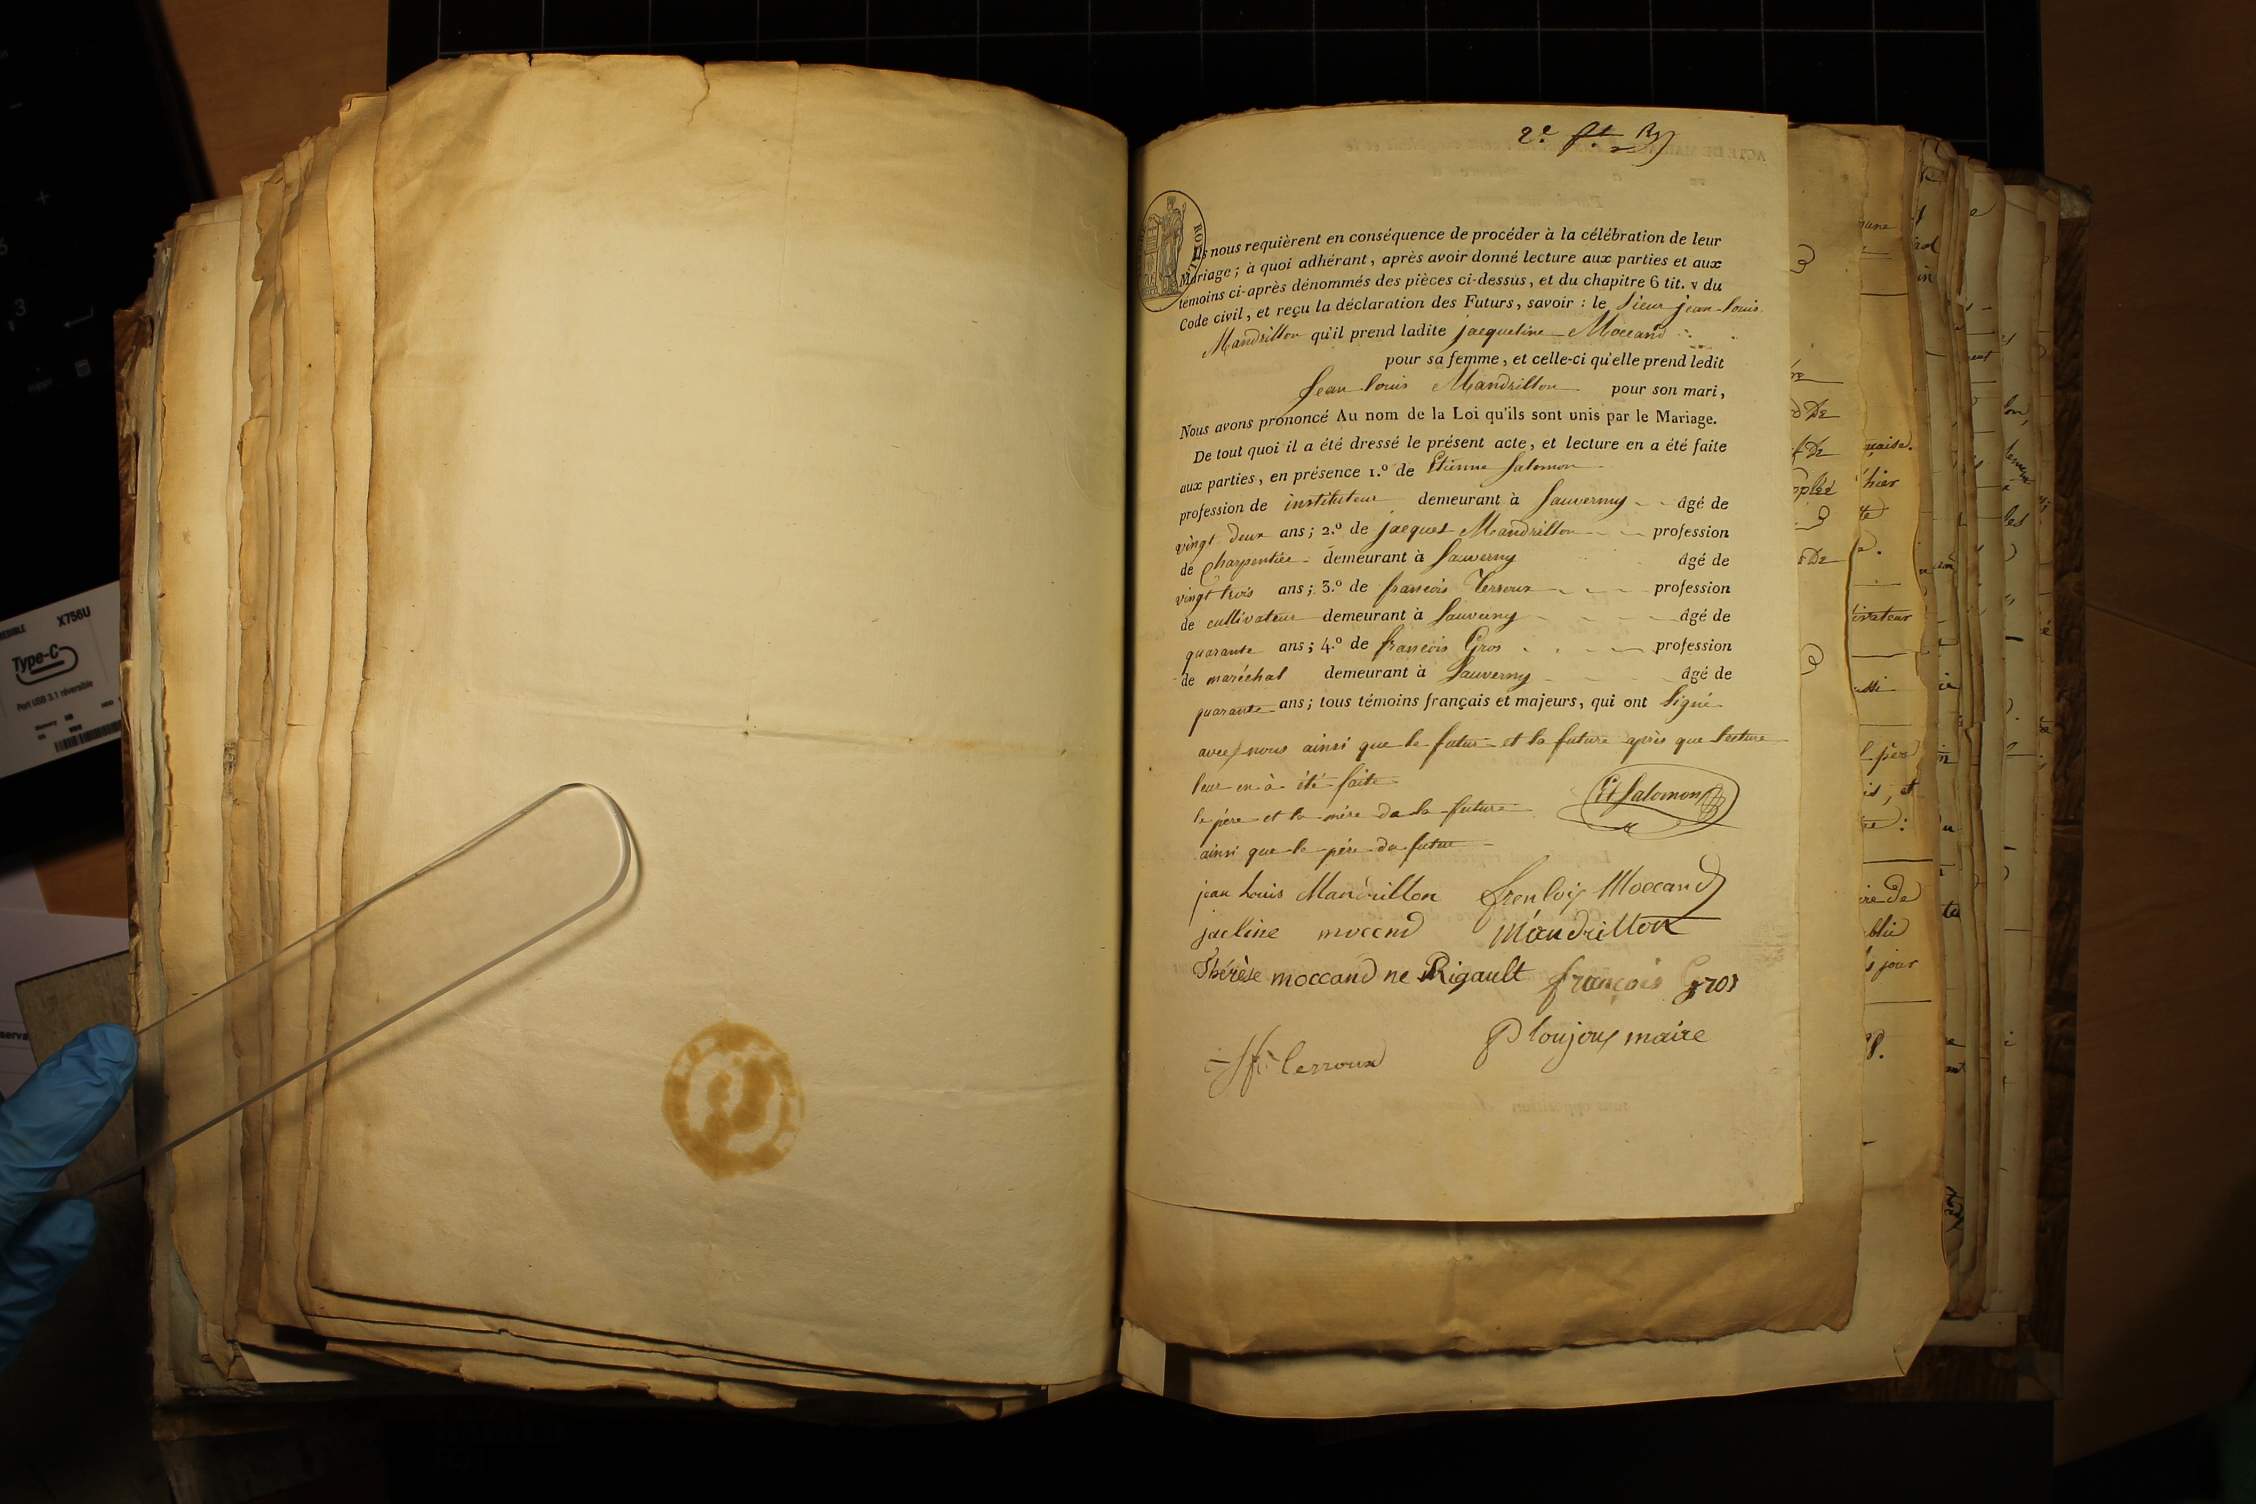 X756U
Type-C
Port USB 3.1 réversible
2e
Ils nous requièrent en conséquence de procéder à la célébration de leur
Mariage ; à quoi adhérant, après avoir donné lecture aux parties et aux
témoins ci-après dénommés des pièces ci-dessus, et du chapitre 6 tit. v du
Code civil, et reçu la déclaration des Futurs, savoir : le Sieur jean-louis
Mandrillon qu'il prend ladite jacqueline Moccand
pour sa femme, et celle-ci qu'elle prend ledit
Jean louis Mandrillon pour son mari,
Nous avons prononcé Au nom de la Loi qu'ils sont unis par le Mariage.
De tout quoi il a été dressé le présent acte, et lecture en a été faite
aux parties, en présence 1.º de Etienne Salomon
profession de instituteur demeurant à Sauverny âgé de
vingt deux ans ; 2.º de jacques Mandrillon profession
de Charpentiée demeurant à Sauverny âgé de
vingt trois ans ; 3.º de francois Terroux profession
de cultivateur demeurant à Sauverny âgé de
quarante ans ; 4.º de francois Gros profession
de maréchal demeurant à Sauverny âgé de
quarante ans ; tous témoins français et majeurs, qui ont signé
avec nous ainsi que le futur et la future après que lecture
leur en à été faite
le pére et la mére de la future
Et Salomon
ainsi que le pére du futur
jean Louis Mandrillon frenlois Moccand
jacline moccnd Mandrillon
Thérèse moccand ne Rigault françois gros
P Loujoux maire
terroux